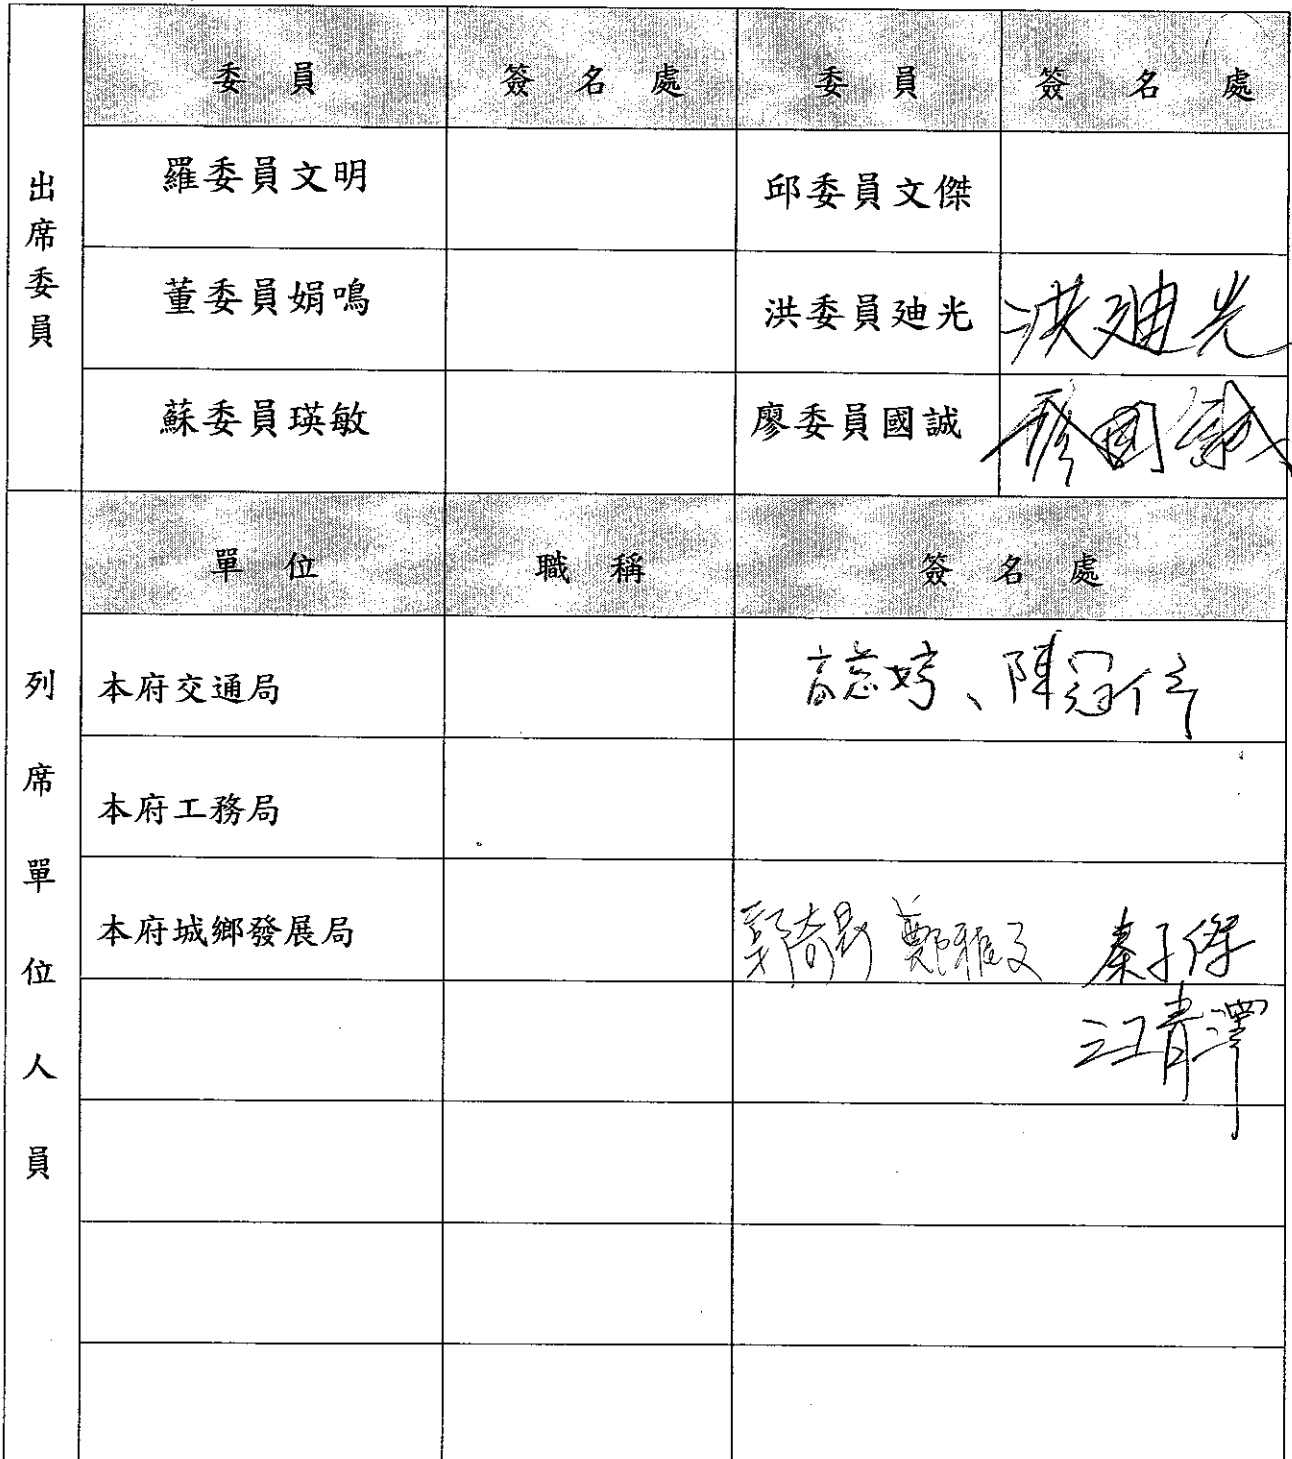 出席委員
委員 簽名處 委員 簽名處
羅委員文明 邱委員文傑
董委員娟鳴 洪委員廸光 洪廸光
蘇委員瑛敏 廖委員國誠 廖國誠
列席單位人員
單位 職稱 簽名處
本府交通局 、陳冠
本府工務局
本府城鄉發展局 郭奇 鄭雅文 秦子傑
江青澤